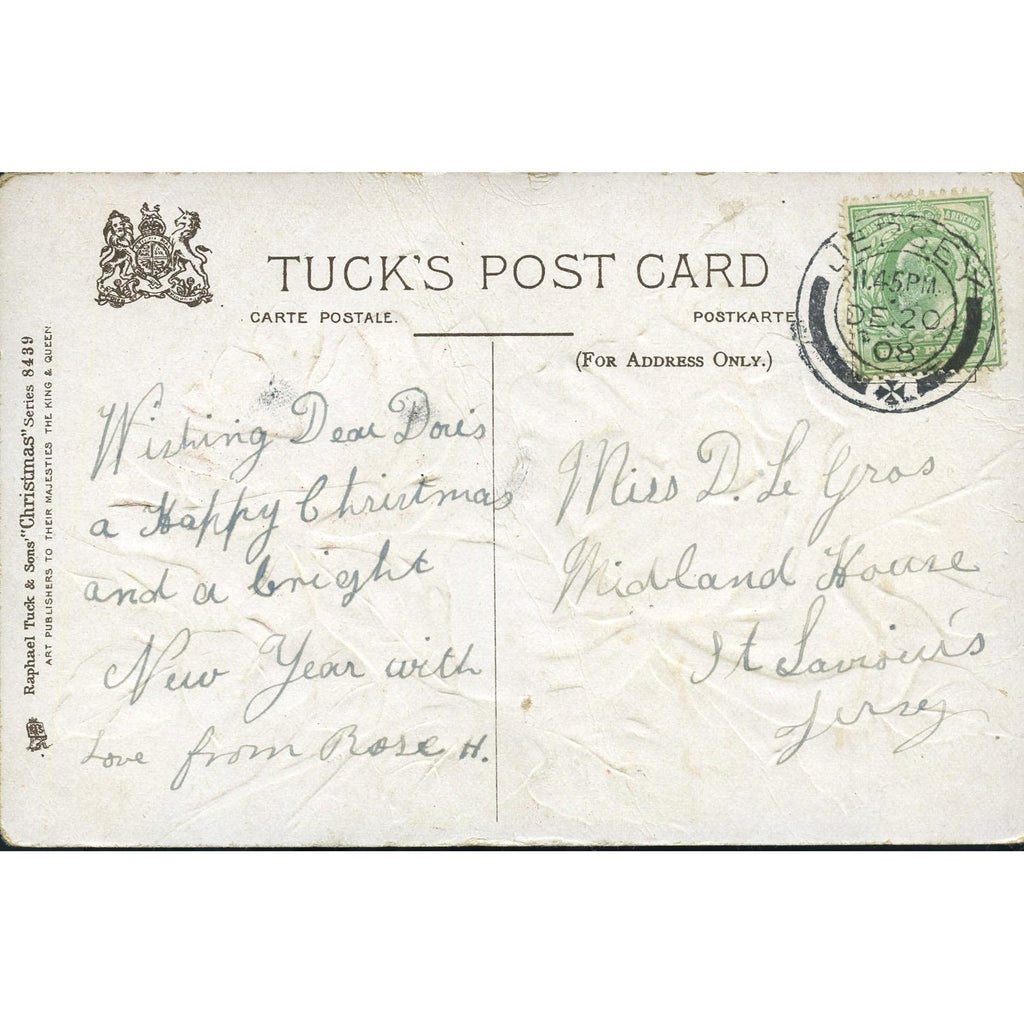 TUCK'S POST CARD
CARTE POSTALE.
POSTKARTE
(FOR ADDRESS ONLY.)
POSTAGE & REVENUE
JERSEY
11.45PM.
DE 20
08
Wishing Dear Doris
a Happy Christmas
and a bright
New Year with
Love from Rose H.
Miss D. Le Gros
Midland House
St Saviour's
Jersey
Raphael Tuck & Sons' "Christmas" Series 8439
ART PUBLISHERS TO THEIR MAJESTIES THE KING & QUEEN.